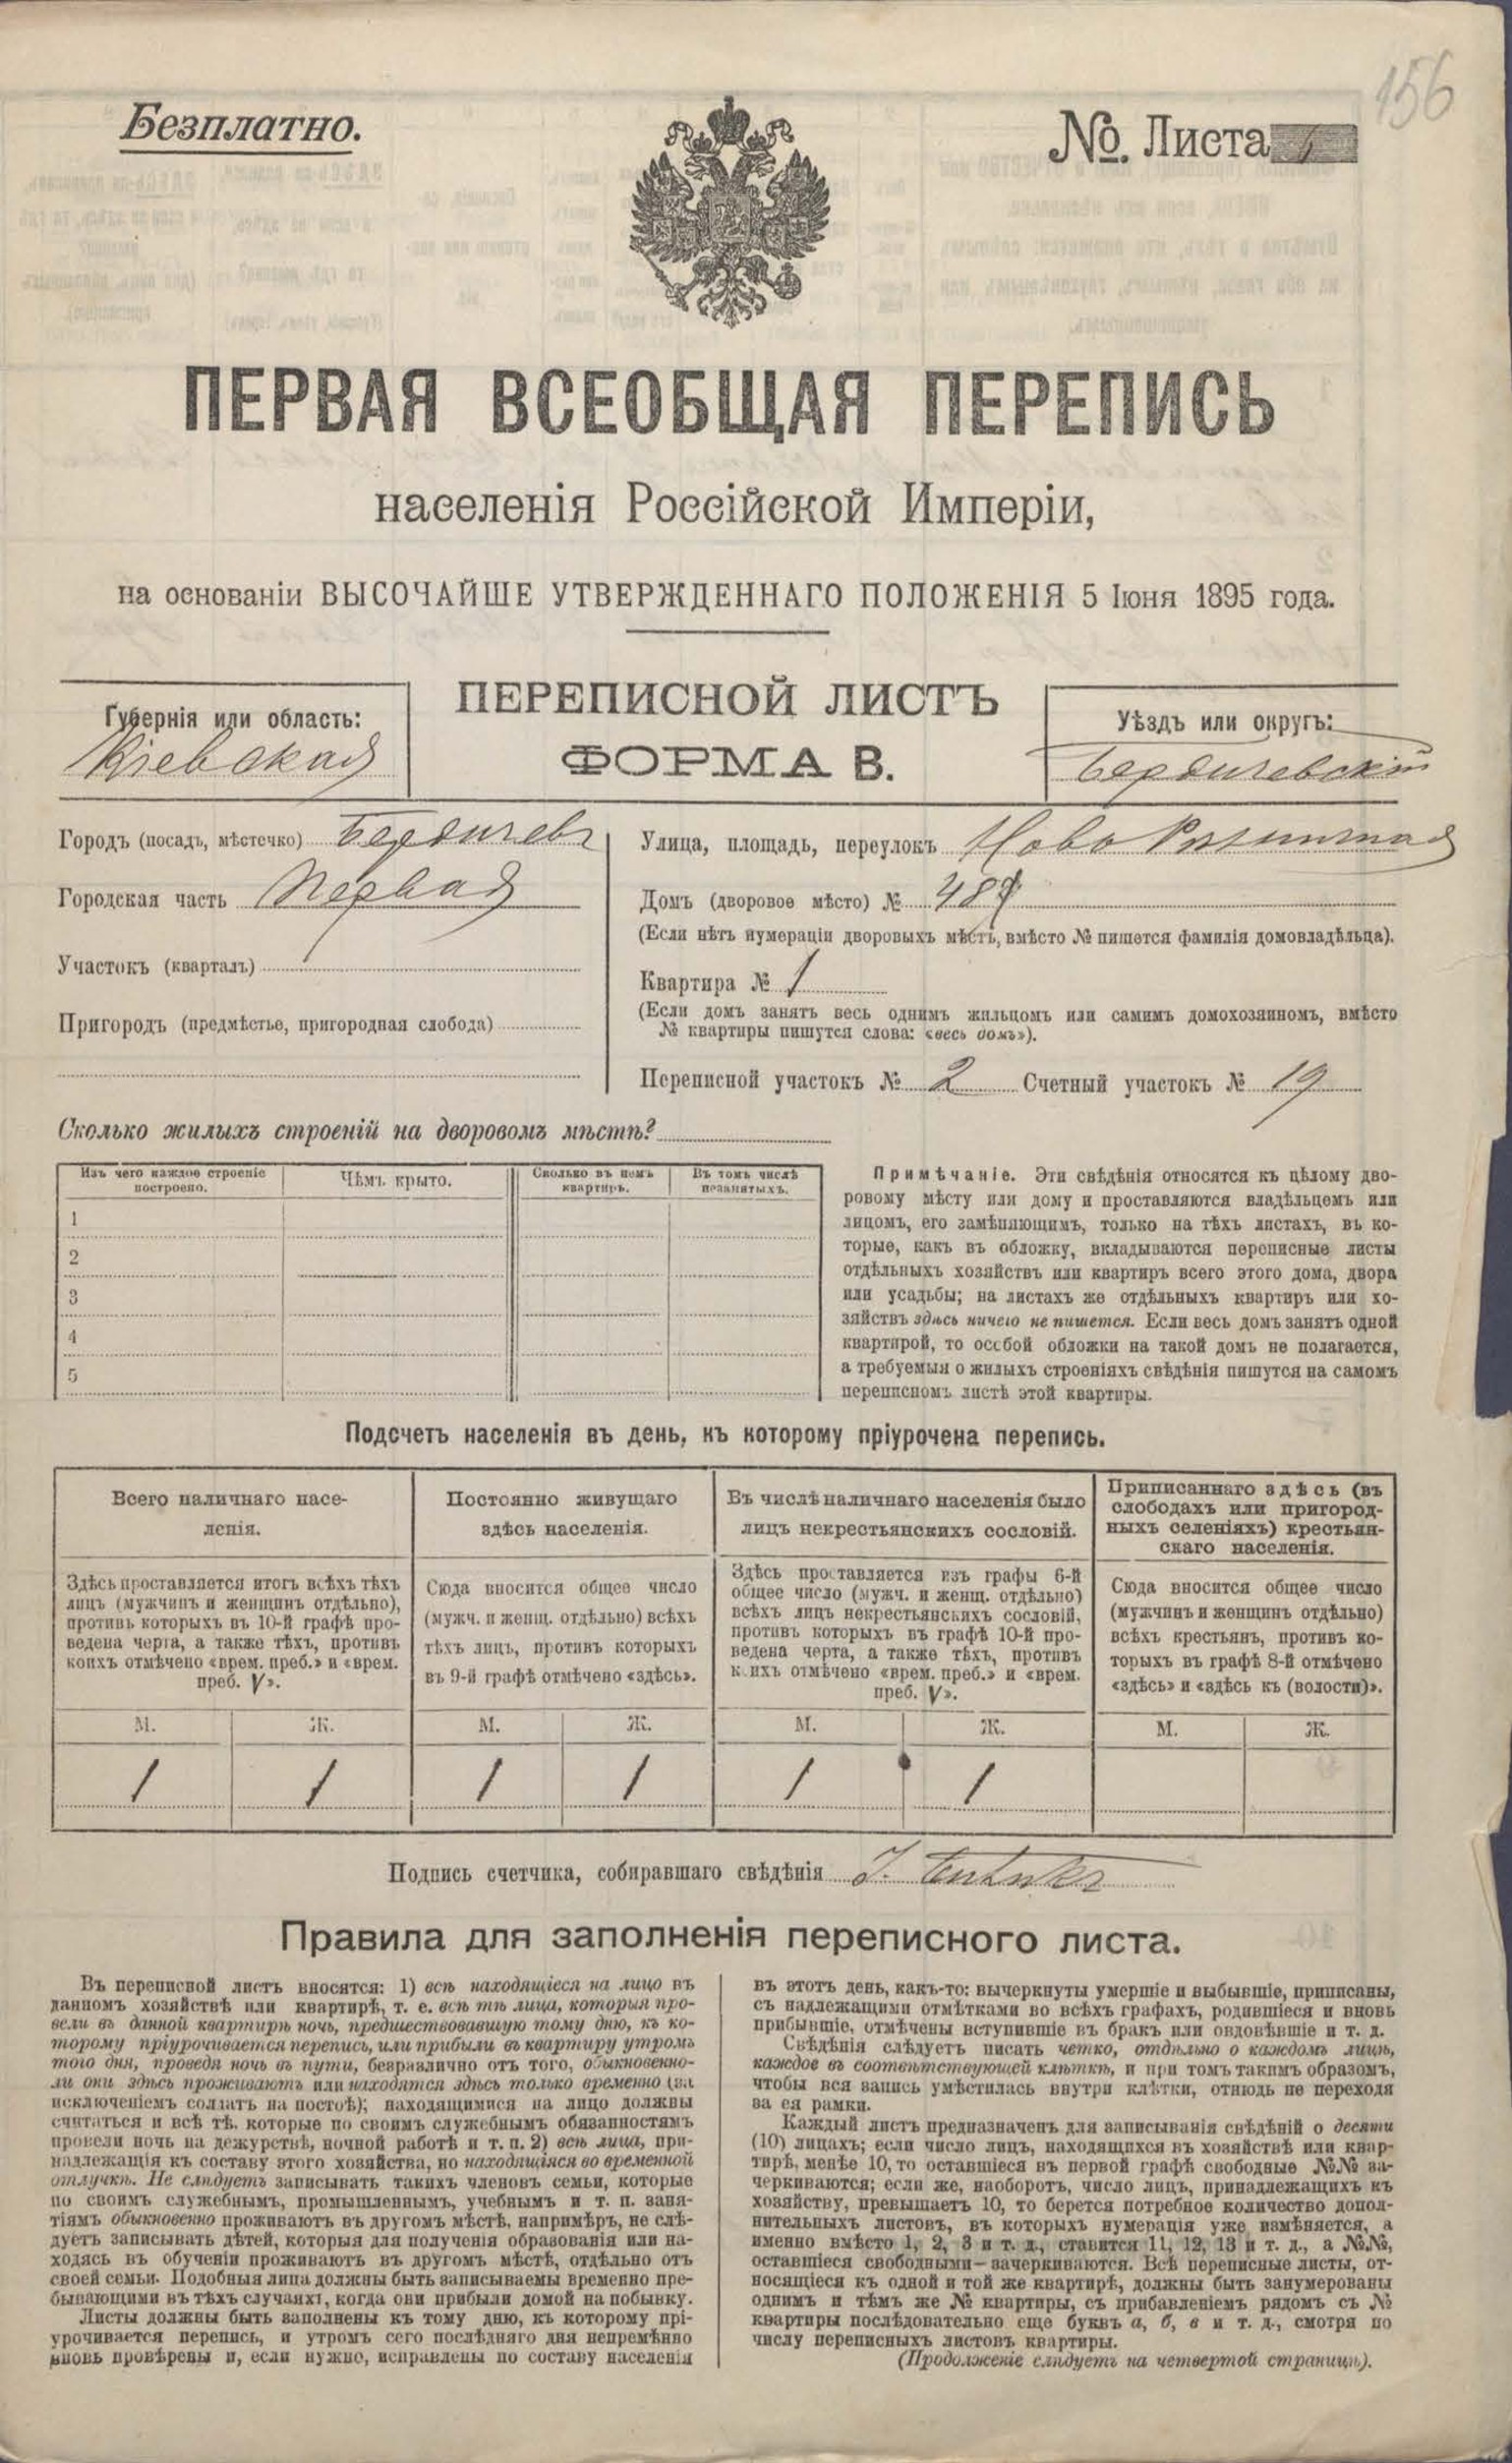 156
Безплатно.
№. Листа 1
ПЕРВАЯ ВСЕОБЩАЯ ПЕРЕПИСЬ
населенія Россійской Имперіи,
на основаніи ВЫСОЧАЙШЕ УТВЕРЖДЕННАГО ПОЛОЖЕНІЯ 5 Іюня 1895 года.
ПЕРЕПИСНОЙ ЛИСТЪ
ФОРМА В.
Губернія или область:
Кіевская
Уѣздъ или округъ:
Бердичевскій
Городъ (посадъ, мѣстечко) Бердичевъ
Городская часть Первая
Участокъ (кварталъ)
Пригородъ (предмѣстье, пригородная слобода)
Улица, площадь, переулокъ Ново
Домъ (дворовое мѣсто) №
(Если нѣтъ нумераціи дворовыхъ мѣстъ, вмѣсто № пишется фамилія домовладѣльца).
Квартира № 1
(Если домъ занятъ весь однимъ жильцомъ или самимъ домохозяиномъ, вмѣсто
№ квартиры пишутся слова: «весь домъ»).
Переписной участокъ № 2 Счетный участокъ № 19
Сколько жилыхъ строеній на дворовомъ мѣстѣ?
Изъ чего каждое строеніе
построено.
Чѣмъ крыто.
Сколько въ немъ
квартиръ.
Въ томъ числѣ
незанятыхъ.
1
2
3
4
5
Примѣчаніе. Эти свѣдѣнія относятся къ цѣлому дво-
ровому мѣсту или дому и проставляются владѣльцемъ или
лицомъ, его замѣняющимъ, только на тѣхъ листахъ, въ ко-
торые, какъ въ обложку, вкладываются переписные листы
отдѣльныхъ хозяйствъ или квартиръ всего этого дома, двора
или усадьбы; на листахъ же отдѣльныхъ квартиръ или хо-
зяйствъ здѣсь ничего не пишется. Если весь домъ занятъ одной
квартирой, то особой обложки на такой домъ не полагается,
а требуемыя о жилыхъ строеніяхъ свѣдѣнія пишутся на самомъ
переписномъ листѣ этой квартиры.
Подсчетъ населенія въ день, къ которому пріурочена перепись.
Всего наличнаго насе-
ленія.
Постоянно живущаго
здѣсь населенія.
Въ числѣ наличнаго населенія было
лицъ некрестьянскихъ сословій.
Приписаннаго здѣсь (въ
слободахъ или пригород-
ныхъ селеніяхъ) крестьян-
скаго населенія.
Здѣсь проставляется итогъ всѣхъ тѣхъ
лицъ (мужчинъ и женщинъ отдѣльно),
противъ которыхъ въ 10-й графѣ про-
ведена черта, а также тѣхъ, противъ
коихъ отмѣчено «врем. преб.» и «врем.
преб. V».
Сюда вносится общее число
(мужч. и женщ. отдѣльно) всѣхъ
тѣхъ лицъ, противъ которыхъ
въ 9-й графѣ отмѣчено «здѣсь».
Здѣсь проставляется изъ графы 6-й
общее число (мужч. и женщ. отдѣльно)
всѣхъ лицъ некрестьянскихъ сословій,
противъ которыхъ въ графѣ 10-й про-
ведена черта, а также тѣхъ, противъ
коихъ отмѣчено «врем. преб.» и «врем.
преб. V».
Сюда вносится общее число
(мужчинъ и женщинъ отдѣльно)
всѣхъ крестьянъ, противъ ко-
торыхъ въ графѣ 8-й отмѣчено
«здѣсь» и «здѣсь къ (волости)».
М. Ж. М. Ж. М. Ж. М. Ж.
1 1 1 1 1 1
Подпись счетчика, собиравшаго свѣдѣнія
Правила для заполненія переписного листа.
Въ переписной листъ вносятся: 1) всѣ находящіеся на лицо въ
данномъ хозяйствѣ или квартирѣ, т. е. всѣ тѣ лица, которыя про-
вели въ данной квартирѣ ночь, предшествовавшую тому дню, къ ко-
торому пріурочивается перепись, или прибыли въ квартиру утромъ
того дня, проведя ночь въ пути, безразлично отъ того, обыкновенно-
ли они здѣсь проживаютъ или находятся здѣсь только временно (за
исключеніемъ солдатъ на постоѣ); находящимися на лицо должны
считаться и всѣ тѣ, которые по своимъ служебнымъ обязанностямъ
провели ночь на дежурствѣ, ночной работѣ и т. п. 2) всѣ лица, при-
надлежащія къ составу этого хозяйства, но находящіяся во временной
отлучкѣ. Не слѣдуетъ записывать такихъ членовъ семьи, которые
по своимъ служебнымъ, промышленнымъ, учебнымъ и т. п. заня-
тіямъ обыкновенно проживаютъ въ другомъ мѣстѣ, напримѣръ, не слѣ-
дуетъ записывать дѣтей, которыя для полученія образованія или на-
ходясь въ обученіи проживаютъ въ другомъ мѣстѣ, отдѣльно отъ
своей семьи. Подобныя лица должны быть записываемы временно пре-
бывающими въ тѣхъ случаяхъ, когда они прибыли домой на побывку.
Листы должны быть заполнены къ тому дню, къ которому прі-
урочивается перепись, и утромъ сего послѣдняго дня непремѣнно
вновь провѣрены и, если нужно, исправлены по составу населенія
въ этотъ день, какъ-то: вычеркнуты умершіе и выбывшіе, приписаны,
съ надлежащими отмѣтками во всѣхъ графахъ, родившіеся и вновь
прибывшіе, отмѣчены вступившіе въ бракъ или овдовѣвшіе и т. д.
Свѣдѣнія слѣдуетъ писать четко, отдѣльно о каждомъ лицѣ,
каждое въ соотвѣтствующей клѣткѣ, и при томъ такимъ образомъ,
чтобы вся запись умѣстилась внутри клѣтки, отнюдь не переходя
за ея рамки.
Каждый листъ предназначенъ для записыванія свѣдѣній о десяти
(10) лицахъ; если число лицъ, находящихся въ хозяйствѣ или квар-
тирѣ, менѣе 10, то оставшіеся въ первой графѣ свободные №№ за-
черкиваются; если же, наоборотъ, число лицъ, принадлежащихъ къ
хозяйству, превышаетъ 10, то берется потребное количество допол-
нительныхъ листовъ, въ которыхъ нумерація уже измѣняется, а
именно вмѣсто 1, 2, 3 и т. д., ставится 11, 12, 13 и т. д., а №№,
оставшіеся свободными—зачеркиваются. Всѣ переписные листы, от-
носящіеся къ одной и той же квартирѣ, должны быть занумерованы
однимъ и тѣмъ же № квартиры, съ прибавленіемъ рядомъ съ №
квартиры послѣдовательно еще буквъ а, б, в и т. д., смотря по
числу переписныхъ листовъ квартиры.
(Продолженіе слѣдуетъ на четвертой страницѣ).